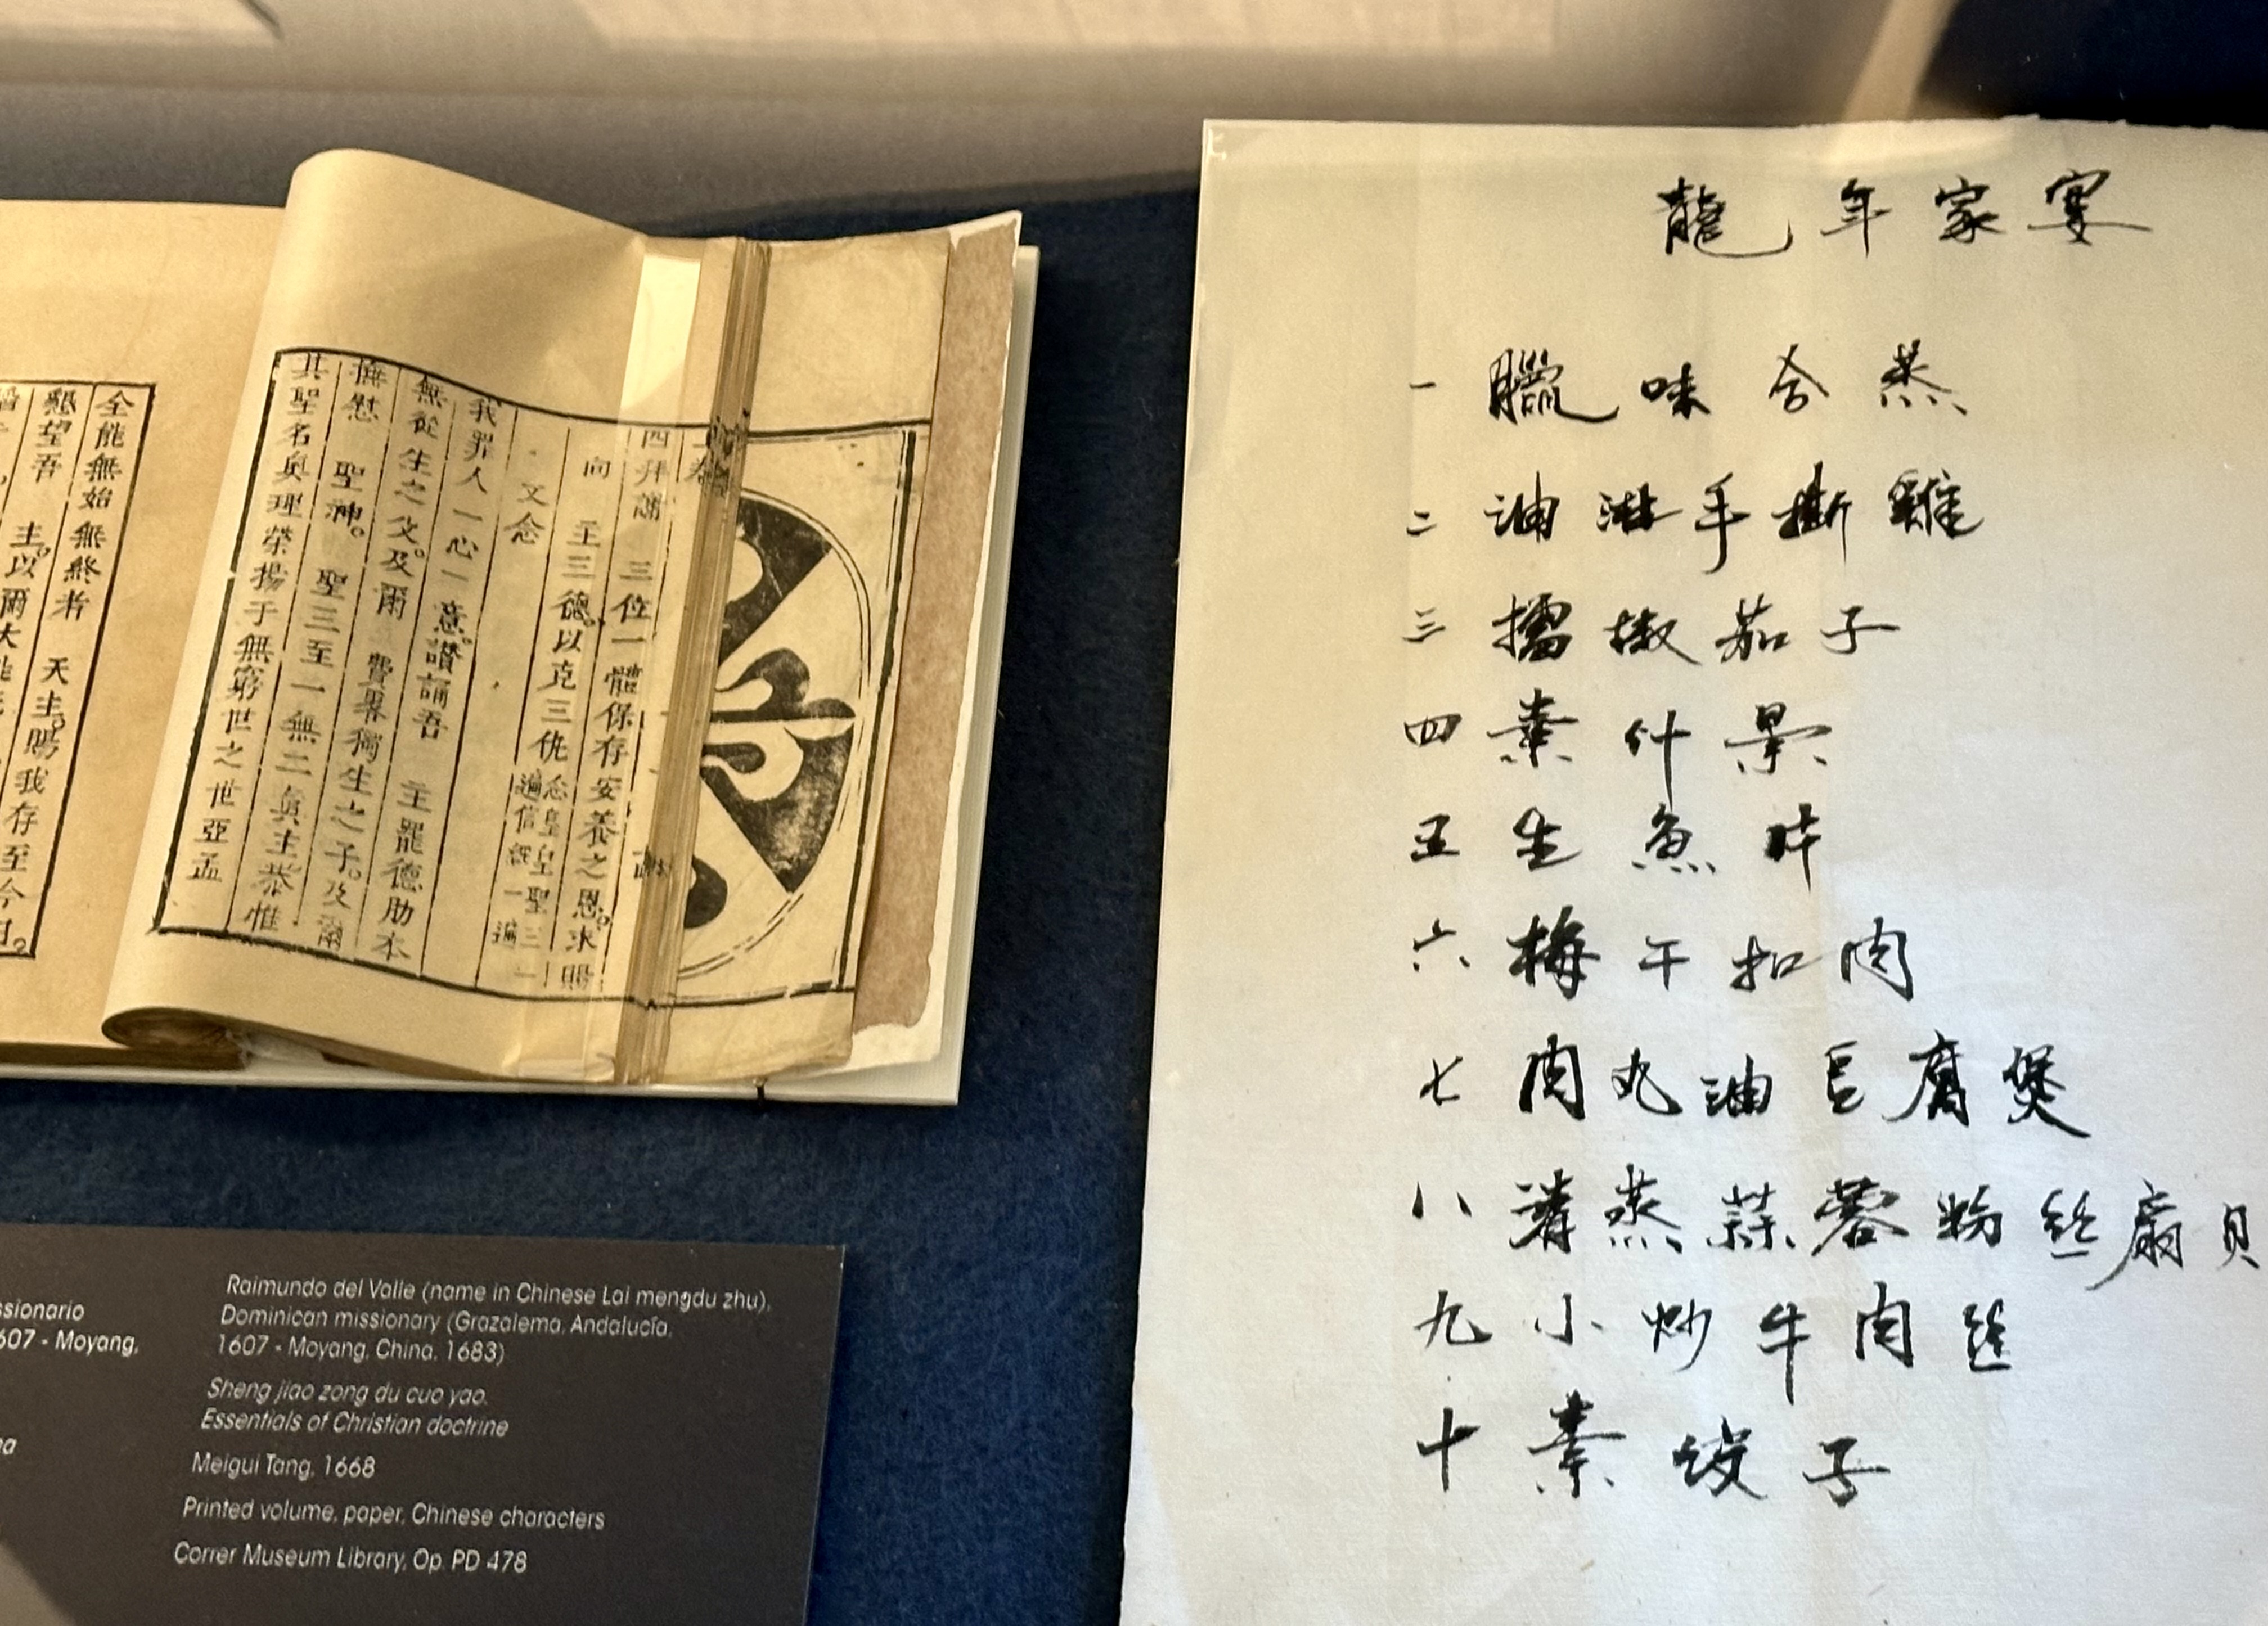 四拜謝 三位一體保存安養之恩。求賜
向 主三德。以克三仇 念皇皇聖三一遍信經一遍
又念
我罪人一心一意。讃誦吾 主罷德肋本
無從生之父。及爾 費畧獨生之子。及爾
撫慰 聖神。 聖三至一無二眞主恭惟
其聖名奥理榮揚于無窮世之世亞孟
全能無始無終者 天主。賜我存至今日。
懇望吾 主。以爾大能
龍年家宴
一 臘味合蒸
二 油淋手撕雞
三 擂椒茄子
四 素什景
五 生魚片
六 梅干扣肉
七 肉丸油豆腐煲
八 清蒸蒜蓉粉丝扇貝
九 小炒牛肉丝
十 素饺子
ssionario
607 - Moyang,
Raimundo del Valle (name in Chinese Lai mengdu zhu),
Dominican missionary (Grazalema, Andalucía,
1607 - Moyang, China, 1683)
Sheng jiao zong du cuo yao.
Essentials of Christian doctrine
Meigui Tang, 1668
Printed volume, paper, Chinese characters
Correr Museum Library, Op. PD 478